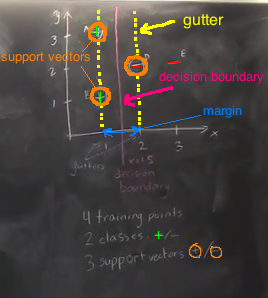 gutter
y
3
support vectors
E
2
decision boundary
1
margin
2
3
x
gutters
x=1.5
decision
boundary
4 training points
2 classes +/-
3 support vectors +/-